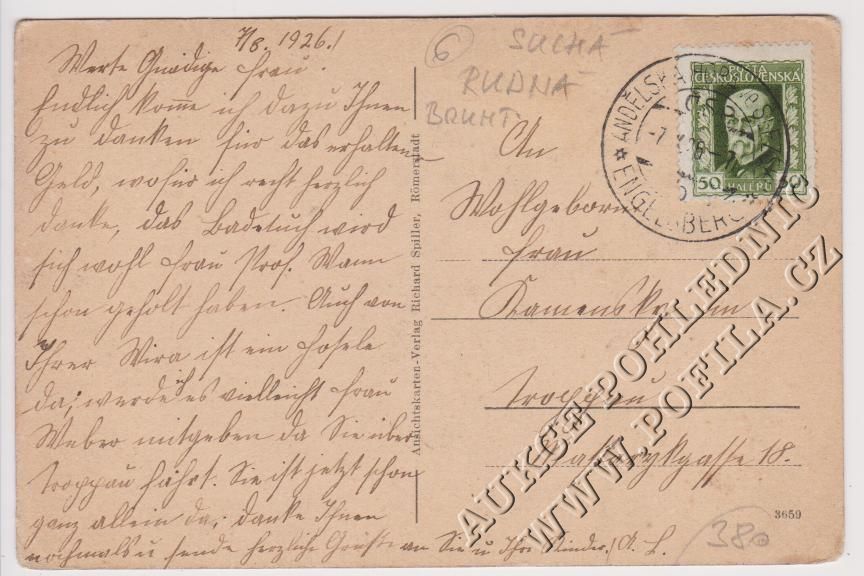 7/8. 1926.!
Werte Gnädige Frau!
Endlich komme ich dazu Ihnen
zu danken für das erhaltene
Geld, wofür ich recht herzlich
danke, das Badetuch wird
sich wohl Frau Prof. Wann
schon geholt haben. Auch von
Ihrer Wira ist ein Hosele
da, werde ich es vielleicht Frau
Weber mitgeben da Sie über
Troppau fährt. Sie ist jetzt schon
ganz allein da, danke Ihnen
nochmals u sende herzliche Grüße an Sie u Ihre Kinder. A. L.
Ansichtskarten-Verlag Richard Spiller, Römerstadt
6
SUCHÁ
RUDNÁ
BRUNT
POŠTA
ČESKOSLOVENSKÁ
50 HALÉŘŮ 50
ANDĚLSKÁ HORA
ENGELSBERG
An
Wohlgeborn
Frau
Kamensky
in
Troppau
Masarykgasse 18.
3659
380
AUKCE POHLEDNIC
WWW.POFILA.CZ